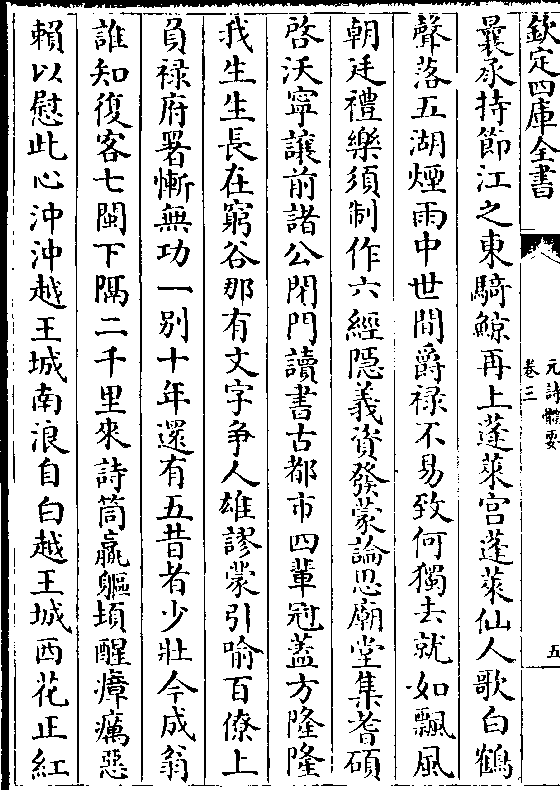 欽定四庫全書
元詩體要
卷三
五
曩承持節江之東騎鯨再上蓬萊宫蓬萊仙人歌白鶴
聲落五湖煙雨中世間爵禄不易致何獨去就如飄風
朝廷禮樂須制作六經隠義資發蒙論思廟堂集耆碩
啓沃寧讓前諸公閉門讀書古都市四輩冠蓋方隆隆
我生生長在窮谷那有文字争人雄謬蒙引喻百僚上
負禄府署慚無功一别十年還有五昔者少壯今成翁
誰知復客七閩下隔二千里來詩筒羸軀頃醒瘴癘惡
賴以慰此心沖沖越王城南浪自白越王城西花正紅